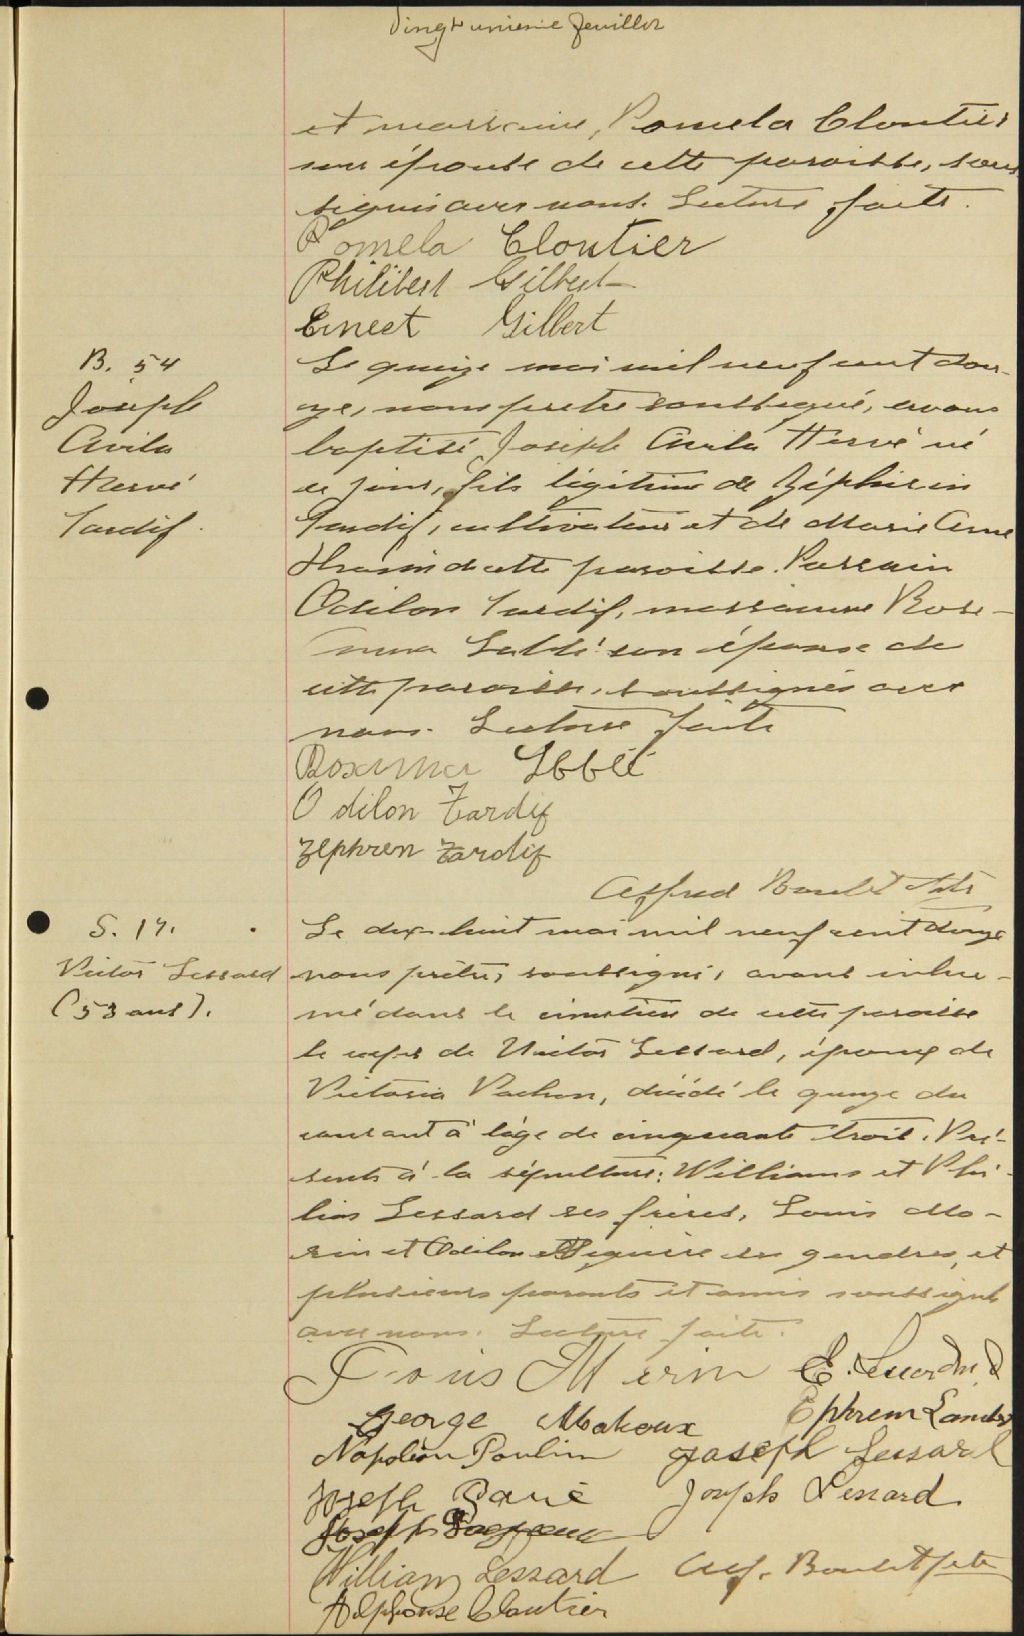 Vingt unieme feuillet
et marraine, Pomela Cloutier
son épouse de cette paroisse, sous
signés avec nous. Lecture faite.
Pomela Cloutier
Philibert Gilbert
Ernest Gilbert
B. 54
Joseph
Avila
Hervé
Tardif.
Le quinze mai mil neuf cent dou-
ze, nous pretre soussigné, avons
baptisé Joseph Avila Hervé né
ce jour, fils légitime de Zéphirin
Tardif, cultivateur et de Marie Anne
de cette paroisse. Parrain
Odilon Tardif, marraine Rose-
anna Labbé son épouse de
cette paroisse, soussignés avec
nous. Lecture faite
Roxanna Labbé
Odilon Tardif
Zephren Tardif
Alfred Boulet Ptr
S. 17.
Victor Lessard
(53 ans).
Le dix-huit mai mil neuf cent douze
nous prêtre, soussigné, avons inhu-
mé dans le cimetière de cette paroisse
le corps de Victor Lessard, époux de
Victoria Vachon, décédé le quinze du
courant à l'âge de cinquante trois. Pré-
sents à la sépulture: Williams et Phi-
lias Lessard ses frères, Louis Mo-
rin et Odilon ses gendres, et
plusieurs parents et amis soussignés
avec nous. Lecture faite.
Louis Morin E.
George Maheux Ephrem
Napoléon Poulin Joseph Lessard
Joseph Joseph Lessard
Joseph
William Lessard Alf. Boulet ptr
Alphonse Cloutier